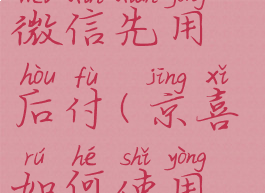 微信先用
hòu fù jīng xǐ
后付(京喜
rú hé shǐ yòng
如何使用